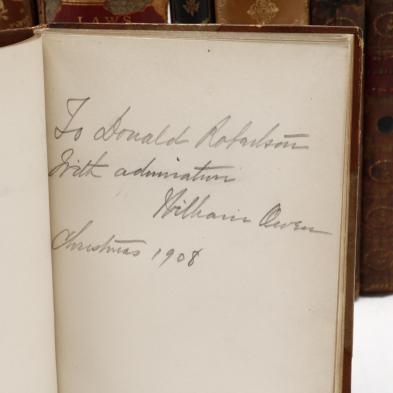 LAWS
To Donald Robertson
With admiration
William Owen
Christmas 1908